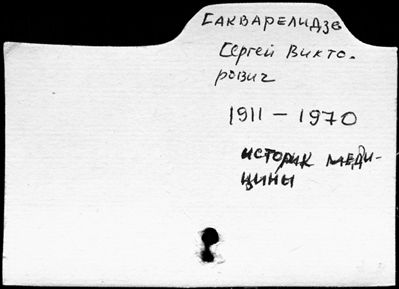 Сакварелидзе
Сергей Викто-
рович
1911 – 1970
историк меди-
цины